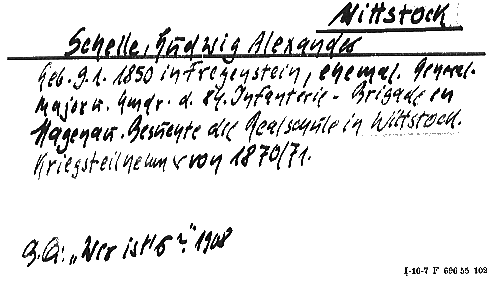 Wittstock
Schelle, Ludwig Alexander
Geb. 9.1. 1850 in Fregenstein, ehemal. General-
major u. Kmdr. d. 84. Infanterie-Brigade in
Hagenau. Besuchte die Realschule in Wittstock.
Kriegsteilnehmer von 1870/71.
"Wer ist's?" 1908
I-16-7 F 690 55 102